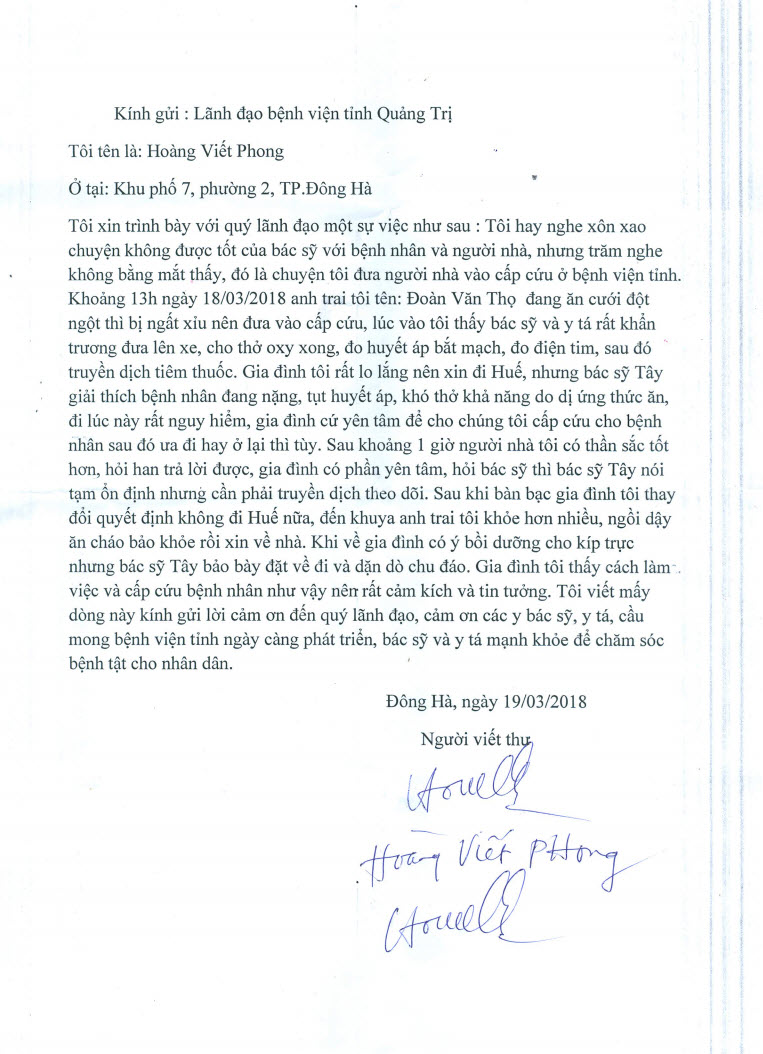 Kính gửi : Lãnh đạo bệnh viện tỉnh Quảng Trị
Tôi tên là: Hoàng Viết Phong
Ở tại: Khu phố 7, phường 2, TP.Đông Hà
Tôi xin trình bày với quý lãnh đạo một sự việc như sau : Tôi hay nghe xôn xao
chuyện không được tốt của bác sỹ với bệnh nhân và người nhà, nhưng trăm nghe
không bằng mắt thấy, đó là chuyện tôi đưa người nhà vào cấp cứu ở bệnh viện tỉnh.
Khoảng 13h ngày 18/03/2018 anh trai tôi tên: Đoàn Văn Thọ đang ăn cưới đột
ngột thì bị ngất xỉu nên đưa vào cấp cứu, lúc vào tôi thấy bác sỹ và y tá rất khẩn
trương đưa lên xe, cho thở oxy xong, đo huyết áp bắt mạch, đo điện tim, sau đó
truyền dịch tiêm thuốc. Gia đình tôi rất lo lắng nên xin đi Huế, nhưng bác sỹ Tây
giải thích bệnh nhân đang nặng, tụt huyết áp, khó thở khả năng do dị ứng thức ăn,
đi lúc này rất nguy hiểm, gia đình cứ yên tâm để cho chúng tôi cấp cứu cho bệnh
nhân sau đó ưa đi hay ở lại thì tùy. Sau khoảng 1 giờ người nhà tôi có thần sắc tốt
hơn, hỏi han trả lời được, gia đình có phần yên tâm, hỏi bác sỹ thì bác sỹ Tây nói
tạm ổn định nhưng cần phải truyền dịch theo dõi. Sau khi bàn bạc gia đình tôi thay
đổi quyết định không đi Huế nữa, đến khuya anh trai tôi khỏe hơn nhiều, ngồi dậy
ăn cháo bảo khỏe rồi xin về nhà. Khi về gia đình có ý bồi dưỡng cho kíp trực
nhưng bác sỹ Tây bảo bày đặt về đi và dặn dò chu đáo. Gia đình tôi thấy cách làm
việc và cấp cứu bệnh nhân như vậy nên rất cảm kích và tin tưởng. Tôi viết mấy
dòng này kính gửi lời cảm ơn đến quý lãnh đạo, cảm ơn các y bác sỹ, y tá, cầu
mong bệnh viện tỉnh ngày càng phát triển, bác sỹ và y tá mạnh khỏe để chăm sóc
bệnh tật cho nhân dân.
Đông Hà, ngày 19/03/2018
Người viết thư
Hoàng Viết PHong